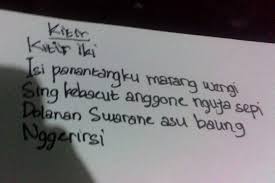 Kitir
Kitir iki
Isi panantangku marang wengi
Sing kebacut anggone nguja sepi
Dolanan Swarane asu baung
Nggerirsi